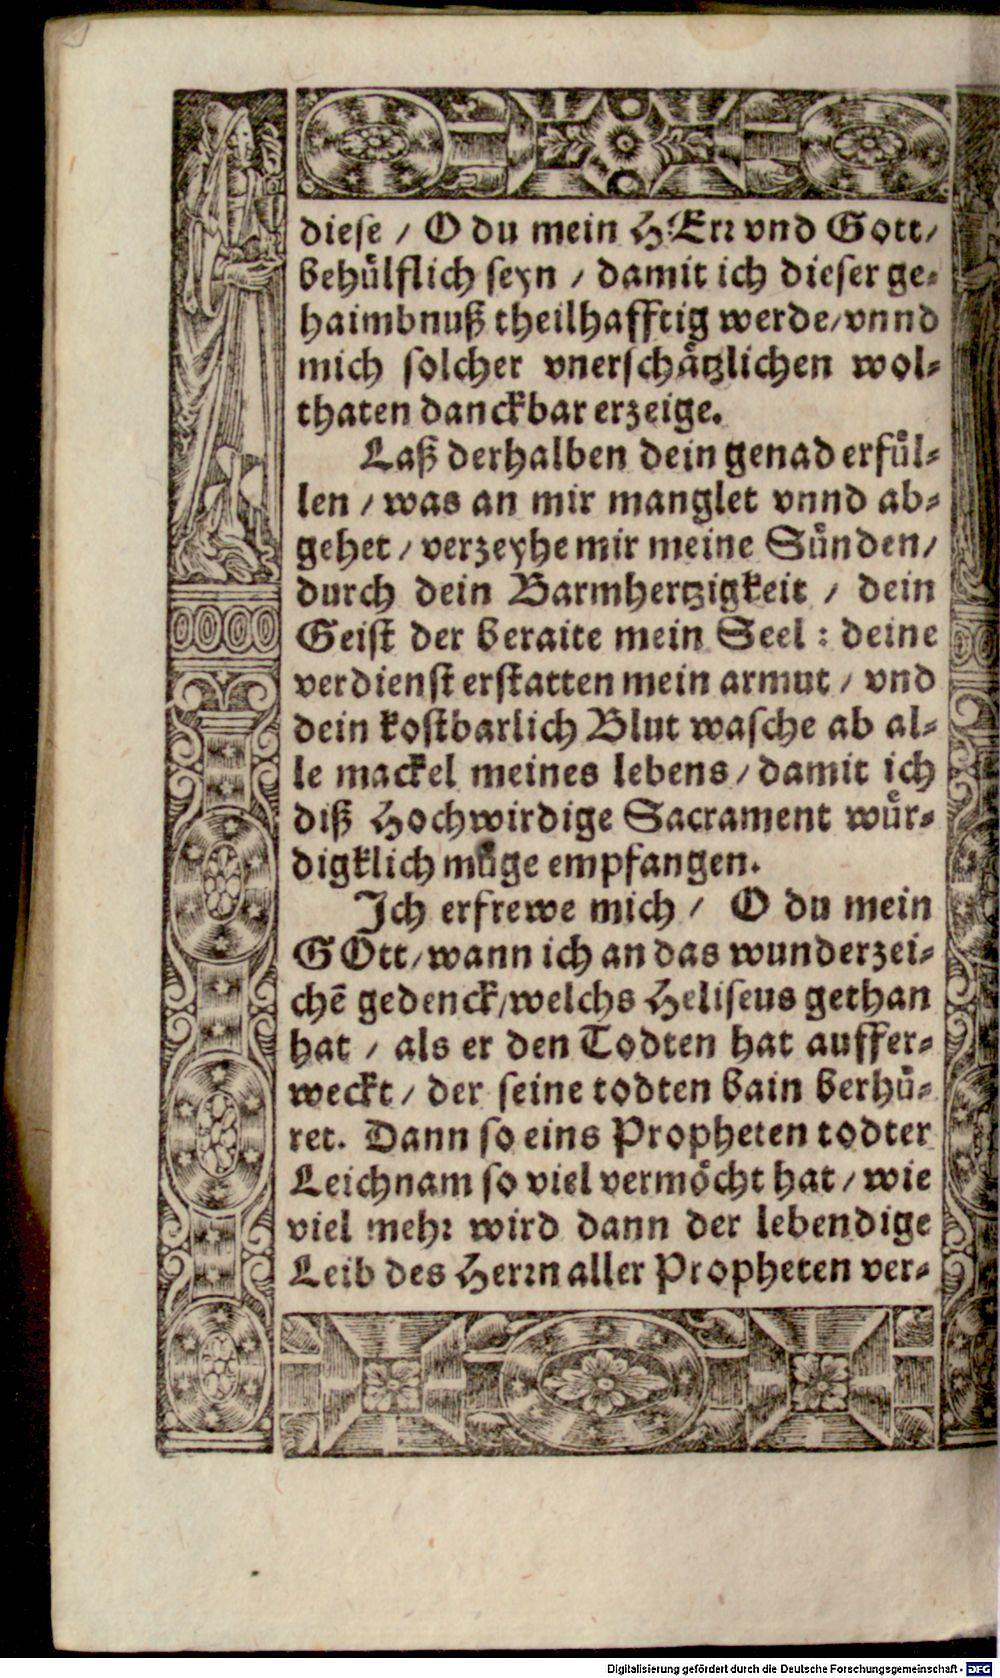 diese / O du mein HErr vnd Gott /
behülflich seyn / damit ich dieser ge-
haimbnuß theilhafftig werde / vnnd
mich solcher vnerschätzlichen wol-
thaten danckbar erzeige.
Laß derhalben dein genad erfül-
len / was an mir manglet vnnd ab-
gehet / verzeyhe mir meine Sünden /
durch dein Barmhertzigkeit / dein
Geist der beraite mein Seel : deine
verdienst erstatten mein armut / vnd
dein kostbarlich Blut wasche ab al-
le mackel meines lebens / damit ich
diß Hochwirdige Sacrament wür-
digklich müge empfangen.
Ich erfrewe mich / O du mein
GOtt / wann ich an das wunderzei-
chē gedenck / welchs Heliseus gethan
hat / als er den Todten hat auffer-
weckt / der seine todten bain berhü-
ret. Dann so eins Propheten todter
Leichnam so viel vermöcht hat / wie
viel mehr wird dann der lebendige
Leib des Herrn aller Propheten ver-
Digitalisierung gefördert durch die Deutsche Forschungsgemeinschaft - DFG